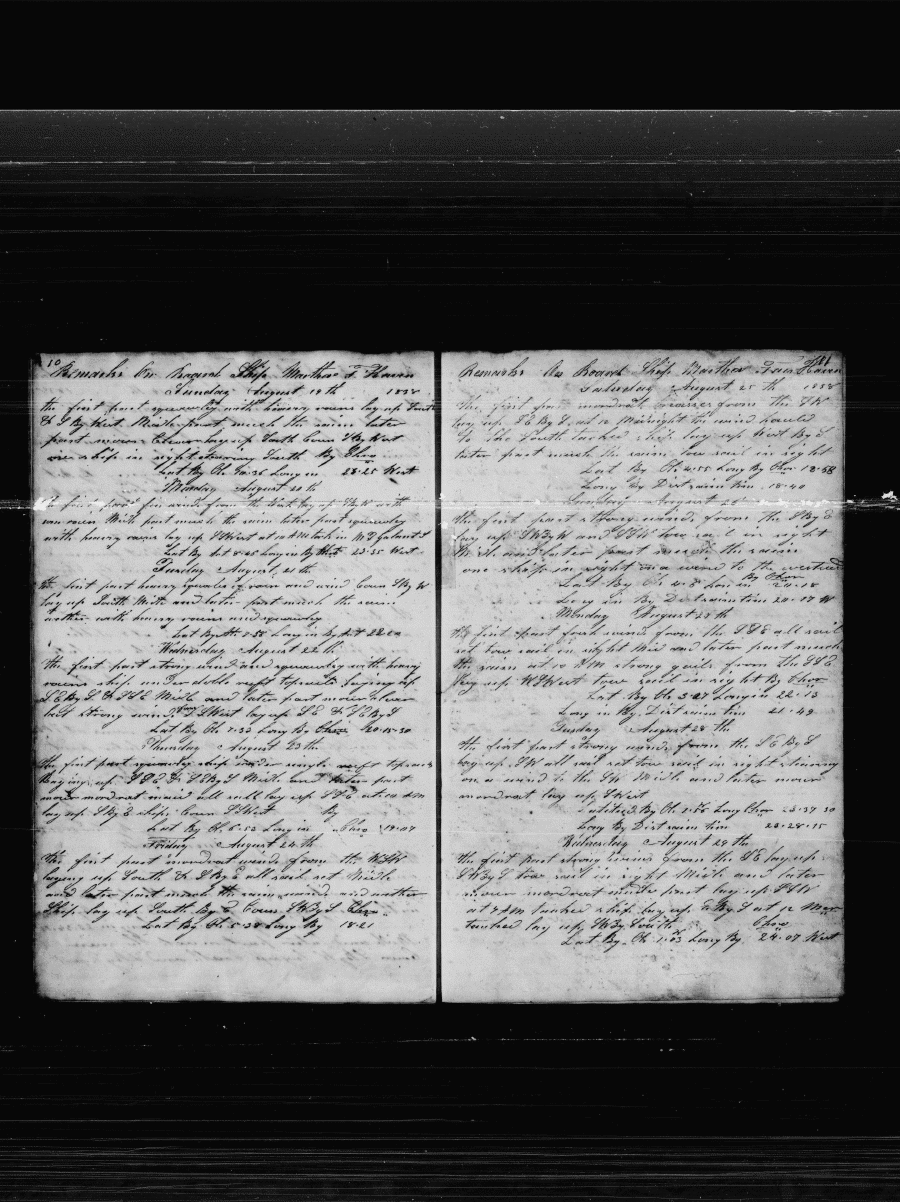 10
Remarks On Board Ship Martha F Haven
Sunday August 19th 1838
the first part squawly with heavy rains lay up South
& S By West Midle part much the same later
part more Clear lay up South Coars S By West
one ship in sight stearing South By Chro
Lat By Ob 10-36 Long in 23-25 West
Monday August 20th
the first part fin winds from the West lay up S By W with
som rain Midle part much the same later part squawly
with heavy rains lay up SSWest at 10 AM took in M T Galant S
Lat By Act 8-45 Long in By Act 23-35 West
Tuesday August 21th
the first part heavy squals of rain and wind Coars S By W
lay up South Midle and later part much the same
wether with heavy rains and squawly
Lat By Act 7-58 Long in By Act 22
Wednesday August 22th
the first part strong wind and squawly with heavy
rains ship under doble reeft topsails laying up
S E By S & SSE Midle and later part more clear
but strong wind from S S West lay up S E & S E By S
Lat By Ob 7-33 Long By Chro 20-15-30
Thursday August 23th
the first part squawly ship under single reeft topsails
laying up SSE & S E By S Midle and later part
more modrat maid all sail lay up SSE at 10 AM
lay up S By E ship Coars SSWest By
Lat By Ob 6-53 Long in Chro 19-07
Friday August 24th
the first part modrat winds from the WSW
laying up South & S By E all sail set Midle
and later part much the same wind and wether
Ship lay up South By E Coars S W By S Chro
Lat By Ob 5-38 Long By 18-21
11
Remarks On Board Ship Martha Fair Haven
Saturday August 25th 1838
the first part modrat breases from the S W
lay up S E By S at 12 Midnight the wind hauld
to the South tacked ship lay up West By S
later part much the same tow sail in sight
Lat By Ob 4-55 Long By Chro 18-58
Long By Dist same time 18-40
Sunday August 26
the first part strong winds from the S By E
lay up S W By W and SSW tow sail in sight
Midle and later part much the same
one ship in sight on a wind to the westward
Lat By Ob 4-8 Long in By Chro 20-08
Long in By Dist same time 20-17 W
Monday August 27th
the first part fresh winds from the SSE all sail
set tow sail in sight Mid and later part much
the same at 10 AM strong gails from the SSE
lay up W S West tow sail in sight By Chro
Lat By Ob 3-27 Long in 22-13
Long in By Dist same time 21-49
Tusday August 28th
the first part strong winds from the S E By S
lay up S W all sail set tow sail in sight stearing
on a wind to the SW Midle and later more
modrat lay up SSWest
Latitid By Ob 2-56 Long Chro 23-37-30
Long By Dist same time 23-28-15
Wednesday August 29th
the first part strong winds from the SE lay up
S W By S tow sail in sight Midle and later
more modrat midle part lay up SSW
at 8 AM tacked ship lay up E By S at 12 Mer
tacked lay up S W By South Chro
Lat By Ob 1-03 Long By 24-07 West